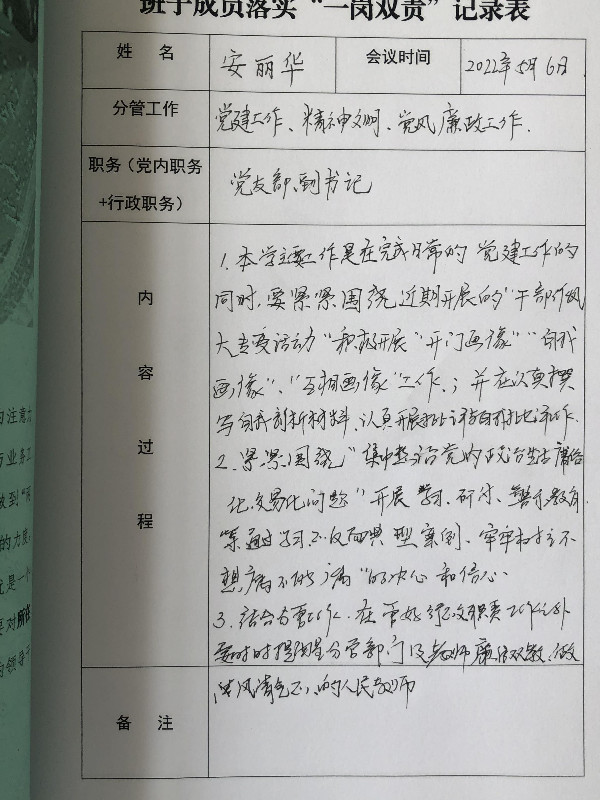 班子成员落实“一岗双责”记录表
姓 名 安丽华 会议时间 2022年5月6日
分管工作 党建工作、精神文明、党风廉政工作.
职务（党内职务
+行政职务） 党支部副书记
内容过程
1.本学主要工作是在完成日常的党建工作的
同时,要紧紧围绕近期开展的“干部作风
大专变活动”积极开展“开门画像”“自我
画像”、“互相画像”工作,;并在认真撰
写自我剖析材料,认真开展批评与自我批评工作.
2.紧紧围绕“集中整治党内政治生活庸俗
化交易化问题”开展学习、研讨、警示教育
等通过学习正反两典型案例、牢牢树立不
想腐不能腐”的决心和信心、
3.结合方面工作,在管好行政职责工作之外
要时时提醒分管部门及教师廉洁双教,做
风清气正的人民教师
备 注
的注意力
与业务工
做到“两
的力度,
况是一个
要对所
为领导干